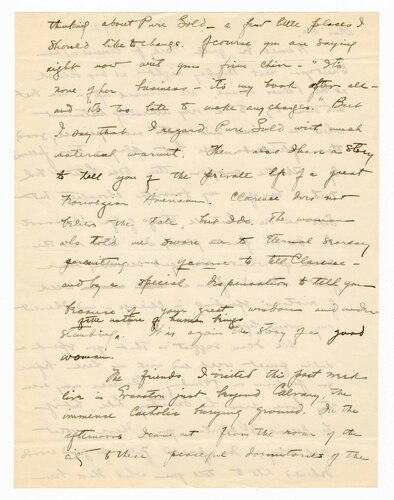 thinking about Pure Gold - a few little places I
should like to change. Of course you are saying
right now with your firm chin - "Its
none of her business - its my book after all -
and its too late to make any changes." But
I say that I regard Pure Gold with much
maternal warmth. Then also I have a story
to tell you of the private life of a great
Norwegian American. Clarence does not
believe the tale, but I do. The woman
who told me swore me to eternal secrecy
permitting me of course to tell Clarence -
and by a special dispensation to tell you
because of your great wisdom and under
of the nature of human beings
standing. It is again the story of a good
woman.
The friends I visited this past week
live in Evanston just beyond Calvary, the
immense Catholic burying ground. In the
afternoons I came out from the roar of the
city to these peaceful dormitories of the